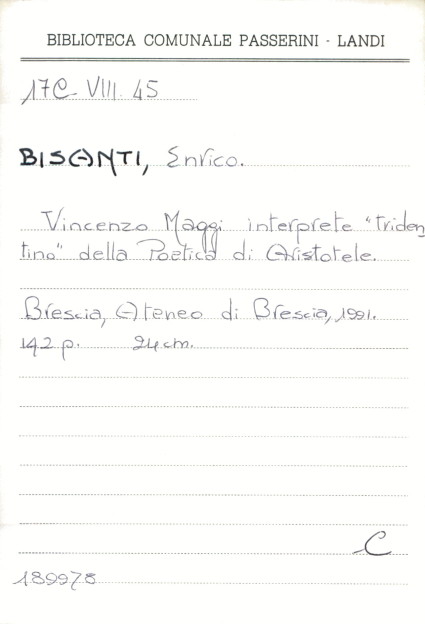 BIBLIOTECA COMUNALE PASSERINI - LANDI
17C- VIII. 45
BISANTI, Enrico.
Vincenzo Maggi interprete "triden
tino" della Poetica di Aristotele.
Brescia, Ateneo di Brescia, 1991.
142 p. 24 cm.
C
189978